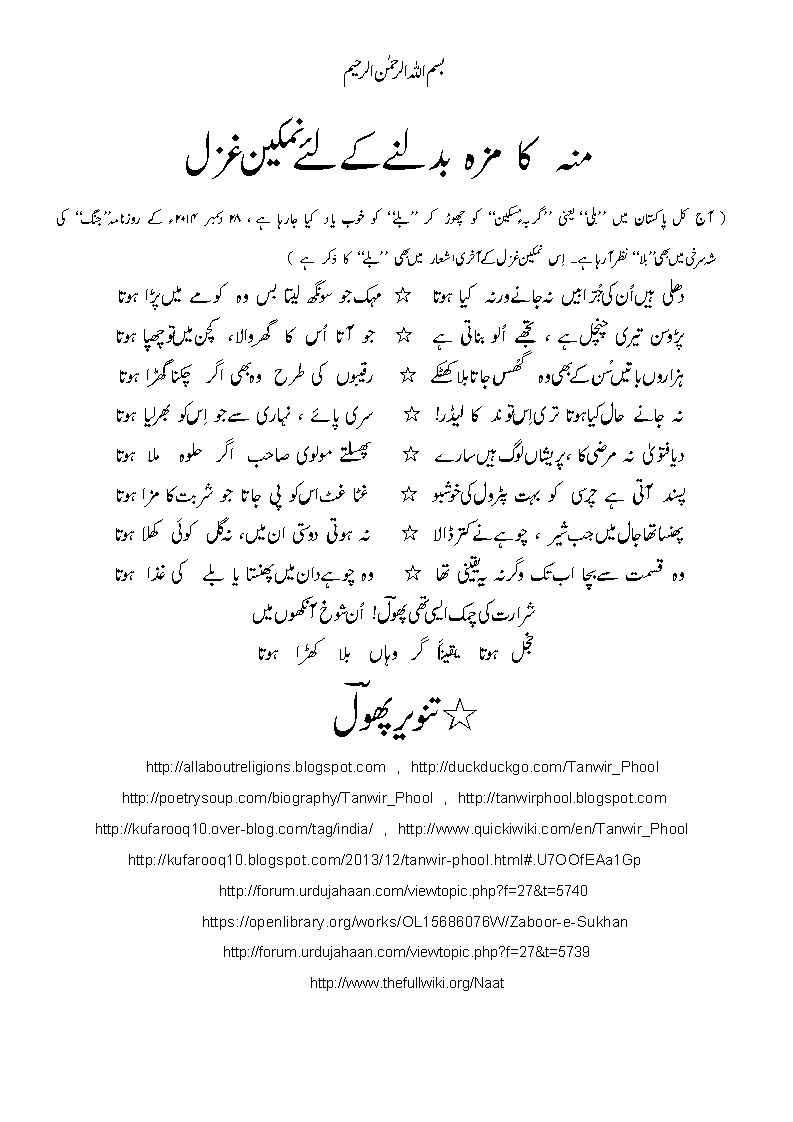 بسم اللہ الرحمٰن الرحیم
منہ کا مزہ بدلنے کے لئے نمکین غزل
( آج کل پاکستان میں ’’بلی‘‘ یعنی ’’گربۂ مسکین‘‘ کو چھوڑ کر ’’بلے‘‘ کو خوب یاد کیا جارہا ہے ، ۲۸ دسمبر ۲۰۱۴ء کے روزنامہ ’’جنگ‘‘ کی
شہ سرخی میں بھی ’’بلا‘‘ نظر آرہا ہے۔ اِس نمکین غزل کے آخری اشعار میں بھی ’’بلے‘‘ کا ذکر ہے )
دھلی ہیں اُن کی جُرابیں نہ جانے ورنہ کیا ہوتا ☆ مہک جو سونگھ لیتا بس وہ کومے میں پڑا ہوتا
پڑوسن تیری چنچل ہے ، تجھے اُلو بناتی ہے ☆ جو آتا اُس کا گھر والا، کچن میں تو چھپا ہوتا
ہزاروں باتیں سُن کے بھی وہ گھُس جاتا بلا کھٹکے ☆ رقیبوں کی طرح وہ بھی اگر چکنا گھڑا ہوتا
نہ جانے حال کیا ہوتا تری اِس توند کا لیڈر! ☆ سری پائے ، نہاری سے جو اِس کو بھر لیا ہوتا
دیا فتویٰ نہ مرضی کا ، پریشاں لوگ ہیں سارے ☆ پھسلتے مولوی صاحب اگر حلوہ ملا ہوتا
پسند آتی ہے چرسی کو بہت پٹرول کی خوشبو ☆ غٹا غٹ اس کو پی جاتا جو شربت کا مزا ہوتا
پھنسا تھا جال میں جب شیر ، چوہے نے کتر ڈالا ☆ نہ ہوتی دوستی ان میں، نہ گل کوئی کھلا ہوتا
وہ قسمت سے بچا اب تک وگرنہ یہ یقینی تھا ☆ وہ چوہے دان میں پھنستا یا بلے کی غذا ہوتا
شرارت کی چمک ایسی تھی پھولؔ! اُن شوخ آنکھوں میں
خجل ہوتا یقیناً گر وہاں بلا کھڑا ہوتا
☆ تنویر پھولؔ
http://allaboutreligions.blogspot.com , http://duckduckgo.com/Tanwir_Phool
http://poetrysoup.com/biography/Tanwir_Phool , http://tanwirphool.blogspot.com
http://kufarooq10.over-blog.com/tag/india/ , http://www.quickiwiki.com/en/Tanwir_Phool
http://kufarooq10.blogspot.com/2013/12/tanwir-phool.html#.U7OOfEAa1Gp
http://forum.urdujahaan.com/viewtopic.php?f=27&t=5740
https://openlibrary.org/works/OL15686076W/Zaboor-e-Sukhan
http://forum.urdujahaan.com/viewtopic.php?f=27&t=5739
http://www.thefullwiki.org/Naat